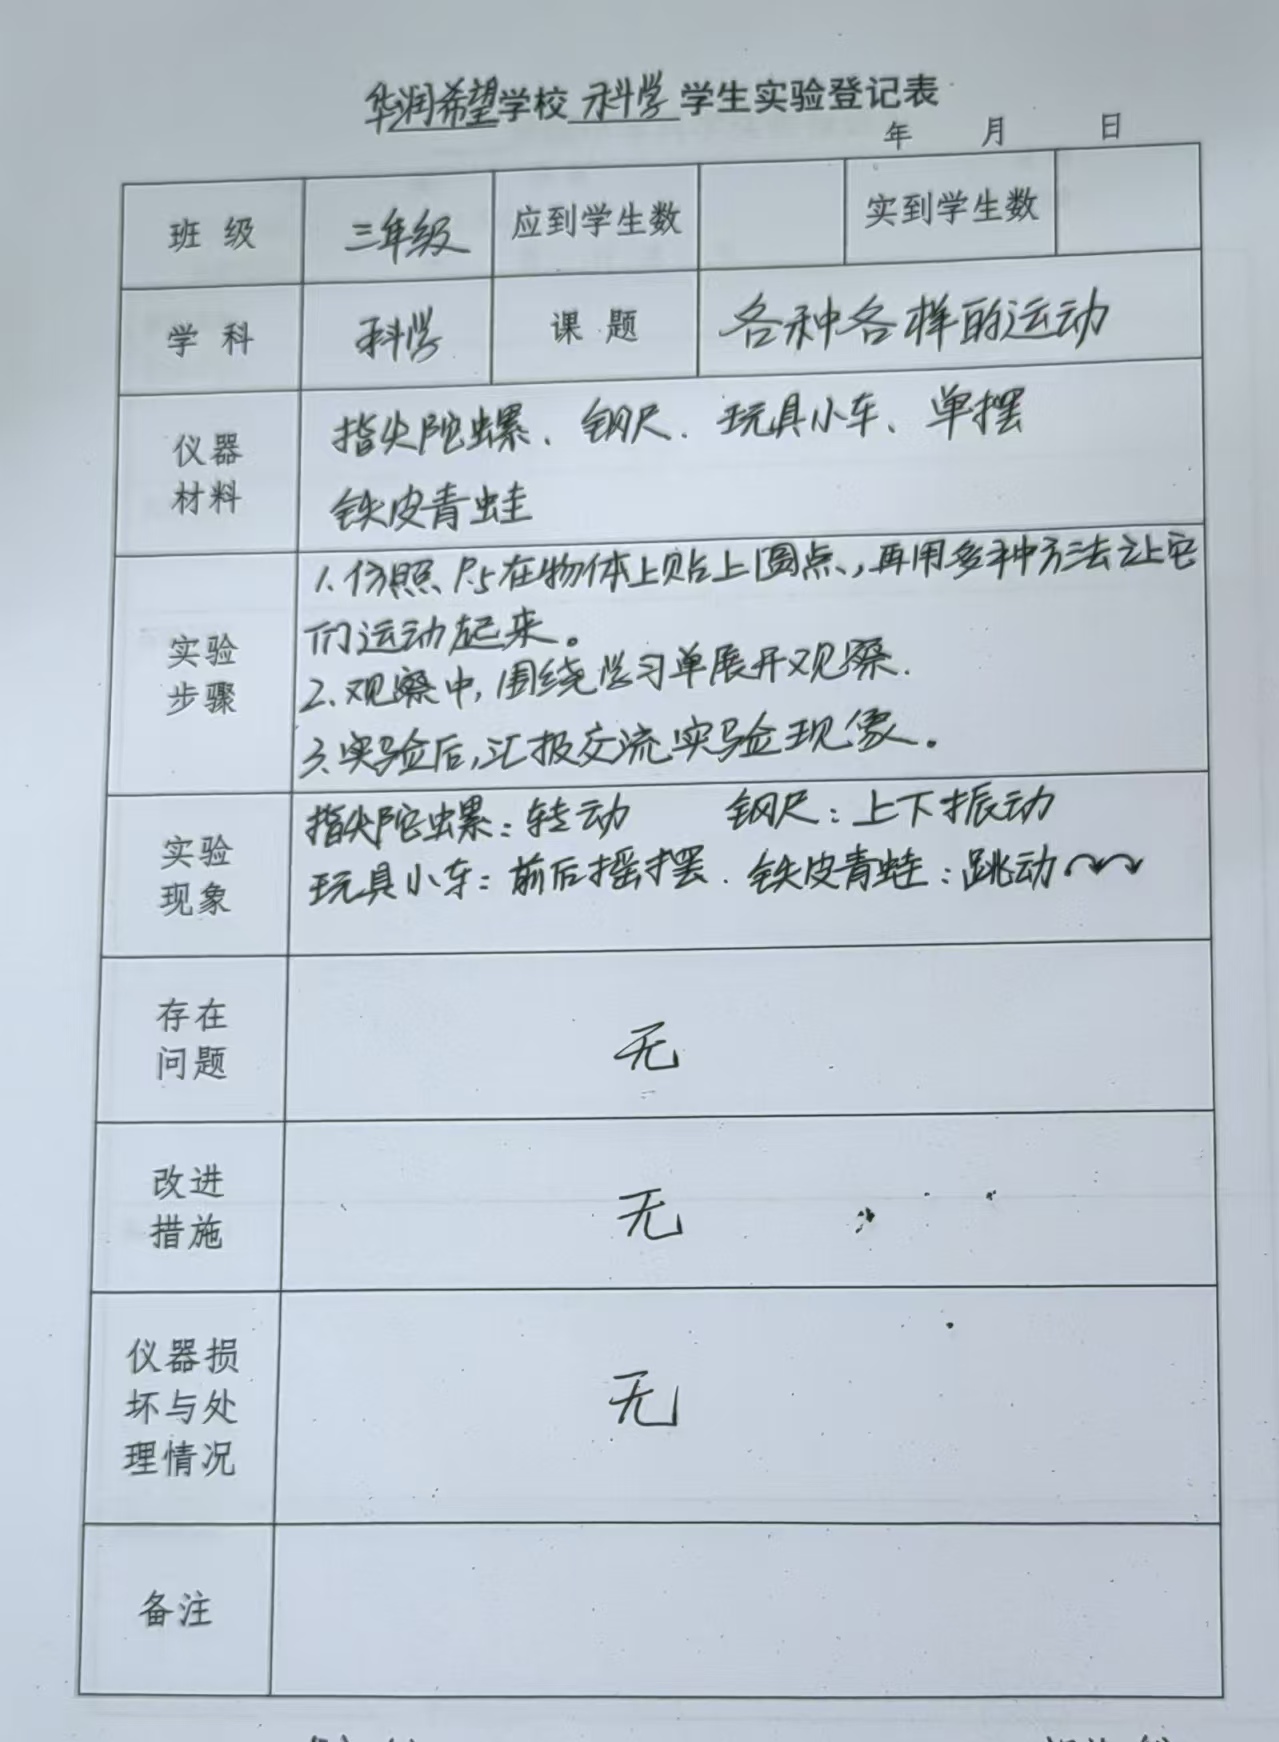 华润希望学校 科学 学生实验登记表
年 月 日
班 级 三年级 应到学生数 实到学生数
学 科 科学 课 题 各种各样的运动
仪器
材料
指尖陀螺、钢尺、玩具小车、单摆
铁皮青蛙
实验
步骤
1.仿照P5在物体上贴上圆点,再用多种方法让它
们运动起来。
2.观察中,围绕学习单展开观察.
3.实验后,汇报交流实验现象。
实验
现象
指尖陀螺:转动 钢尺:上下振动
玩具小车:前后摇摆. 铁皮青蛙:跳动
存在
问题
无
改进
措施
无
仪器损
坏与处
理情况
无
备注